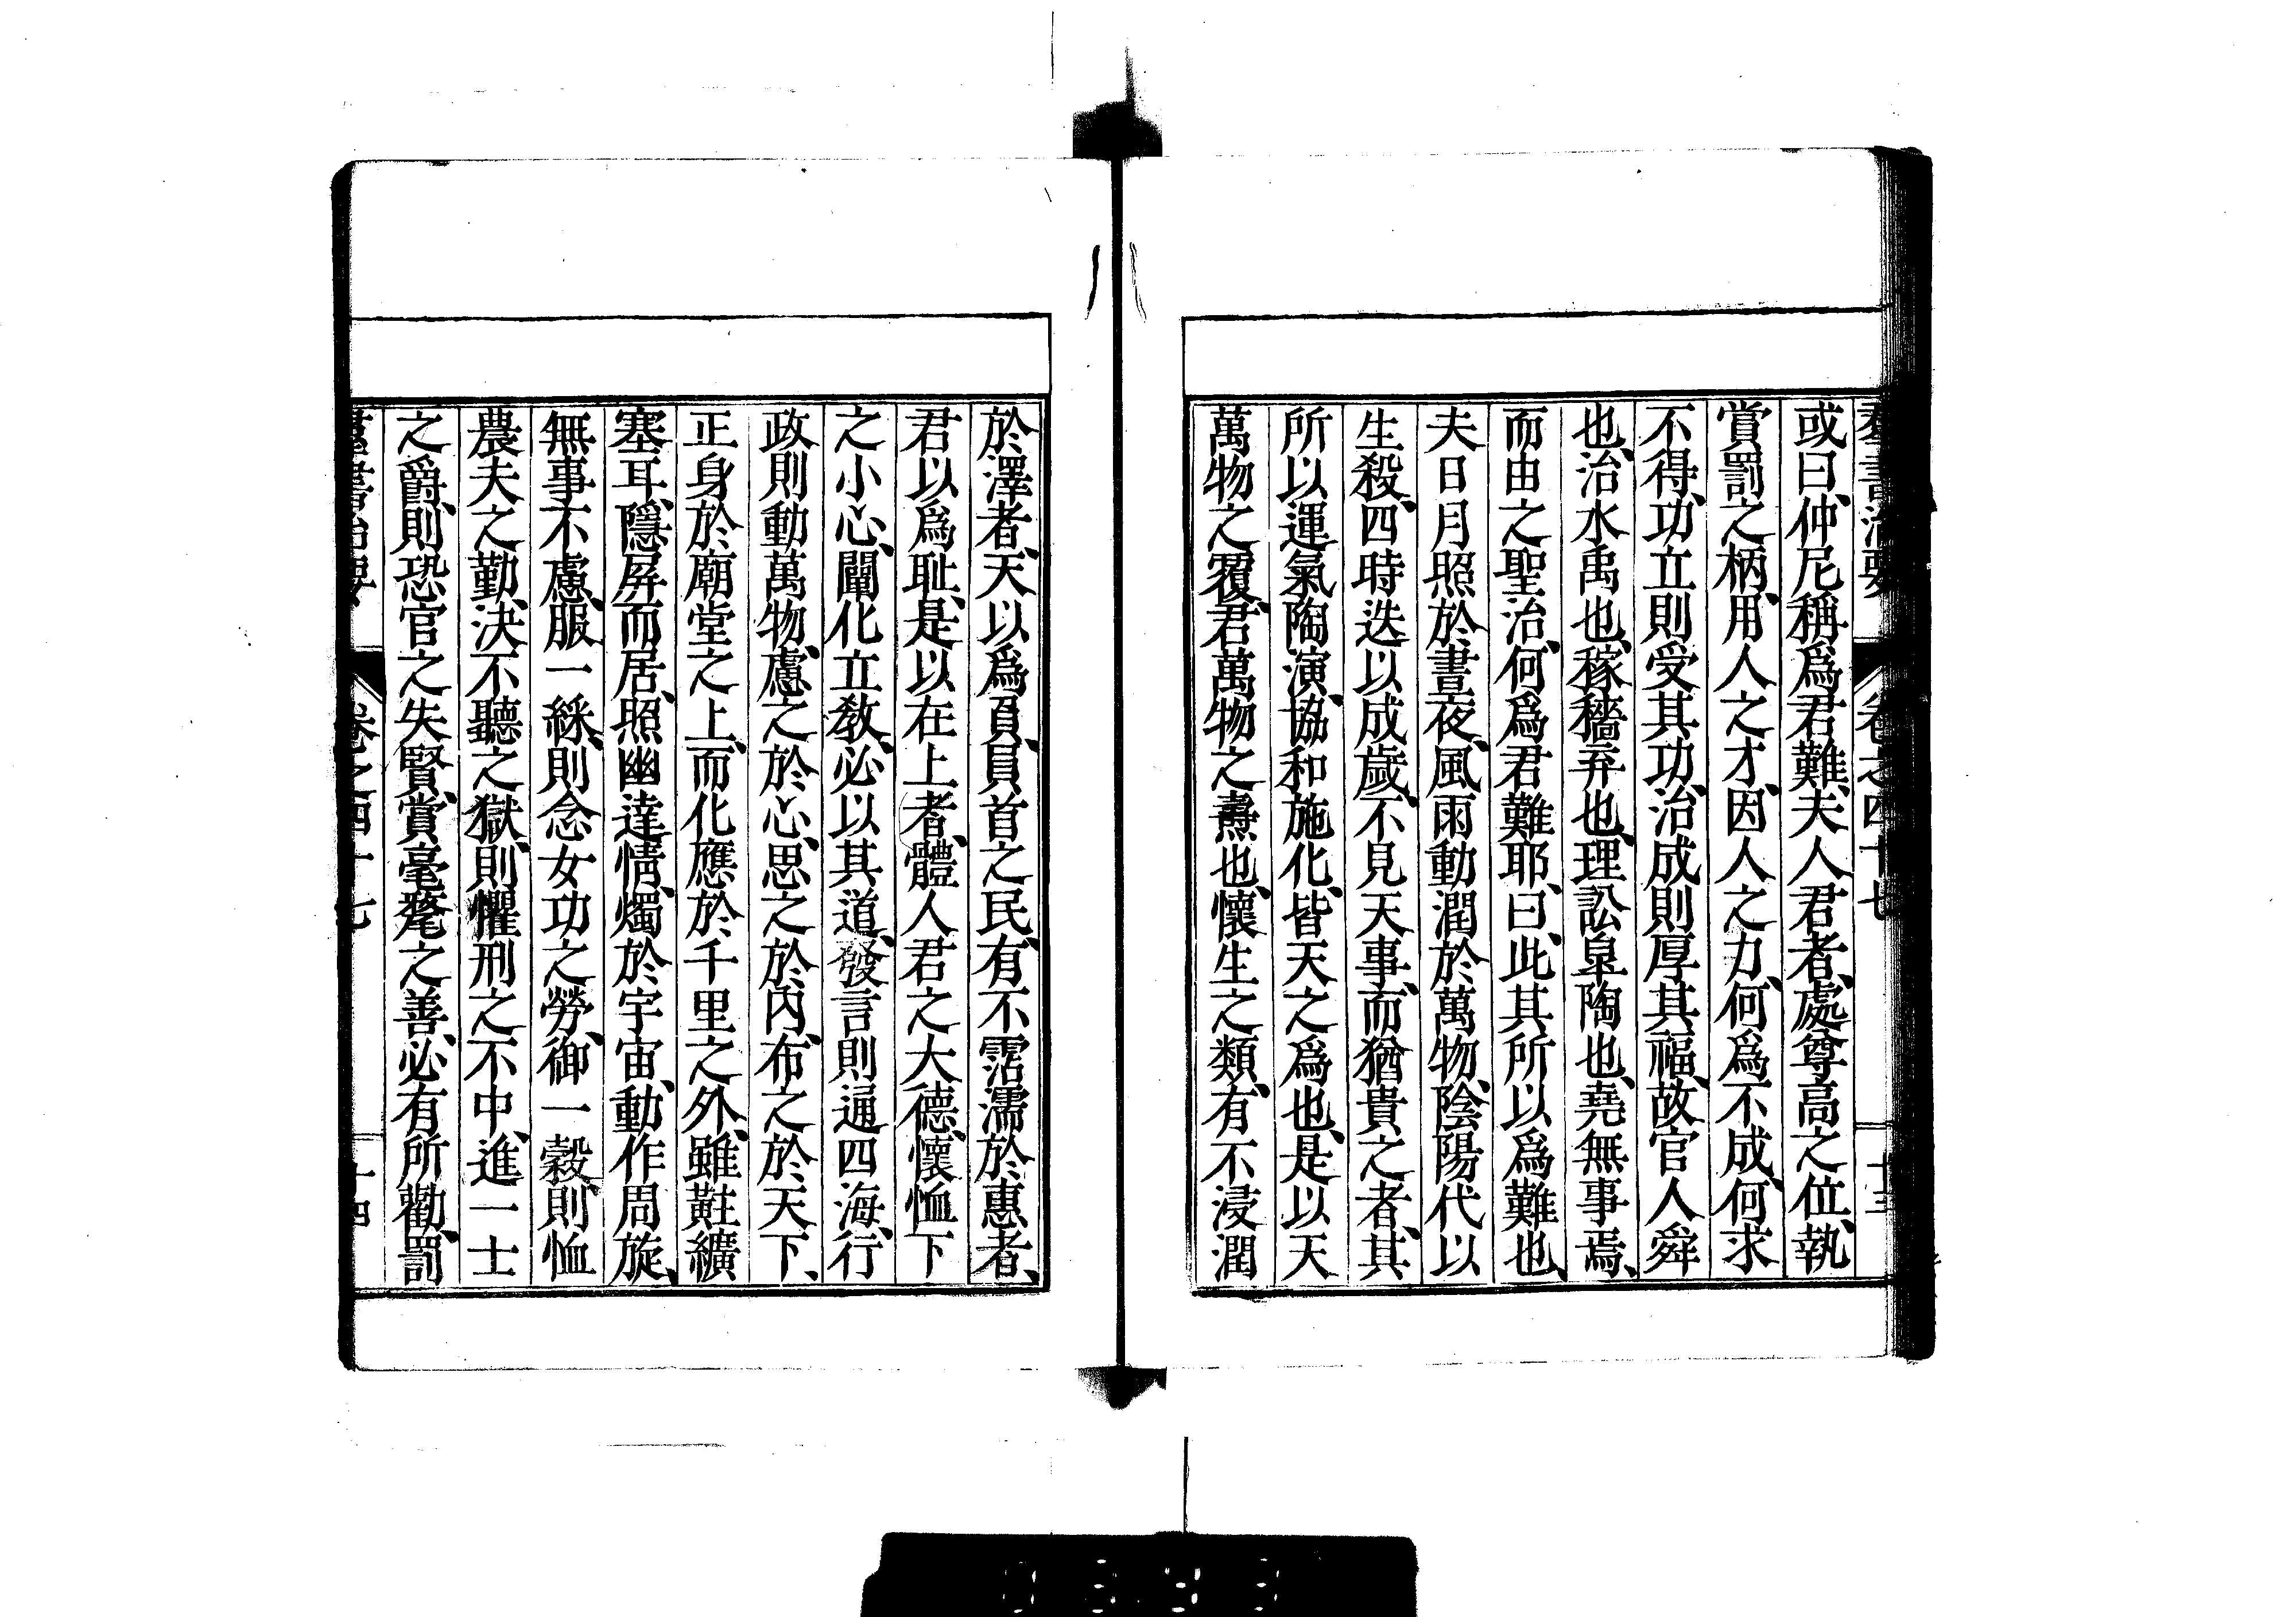 羣書治要 卷之四十七 十三
或曰、仲尼稱爲君難、夫人君者、處尊高之位、執
賞罰之柄、用人之才、因人之力、何爲不成、何求
不得、功立則受其功、治成則厚其福、故官人舜
也、治水禹也、稼穡弃也、理訟皐陶也、堯無事焉、
而由之聖治、何爲君難耶、曰、此其所以爲難也、
夫日月照於晝夜、風雨動潤於萬物、陰陽代以
生殺、四時迭以成歲、不見天事、而猶貴之者、其
所以運氣陶演、協和施化、皆天之爲也、是以天
萬物之覆、君萬物之燾也、懷生之類、有不浸潤
於澤者、天以爲負、員首之民、有不霑濡於惠者、
君以爲耻、是以在上者、體人君之大德、懷恤下
之小心、闡化立敎、必以其道、發言則通四海、行
政則動萬物、慮之於心、思之於內、布之於天下、
正身於廟堂之上、而化應於千里之外、雖黈纊
塞耳、隱屏而居、照幽達情、燭於宇宙、動作周旋、
無事不慮、服一綵、則念女功之勞、御一穀、則恤
農夫之勤、決不聽之獄、則懼刑之不中、進一士
之爵、則恐官之失賢、賞毫氂之善、必有所勸、罰
羣書治要 卷之四十七 十四